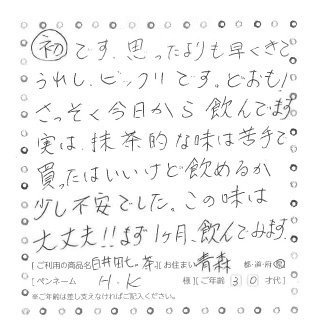 初です。思ったよりも早くきて
うれし、ビックリです。どおも!
さっそく今日から飲んでます
実は、抹茶的な味は苦手で
買ったはいいけど飲めるか
少し不安でした。この味は
大丈夫!!まず1ヶ月、飲んでみます
[ご利用の商品名 白井田七。茶。][お住まい 青森 都・道・府・県]
[ペンネーム H.K 様][ご年齢 30 才代]
※ご年齢は差し支えなければご記入ください。